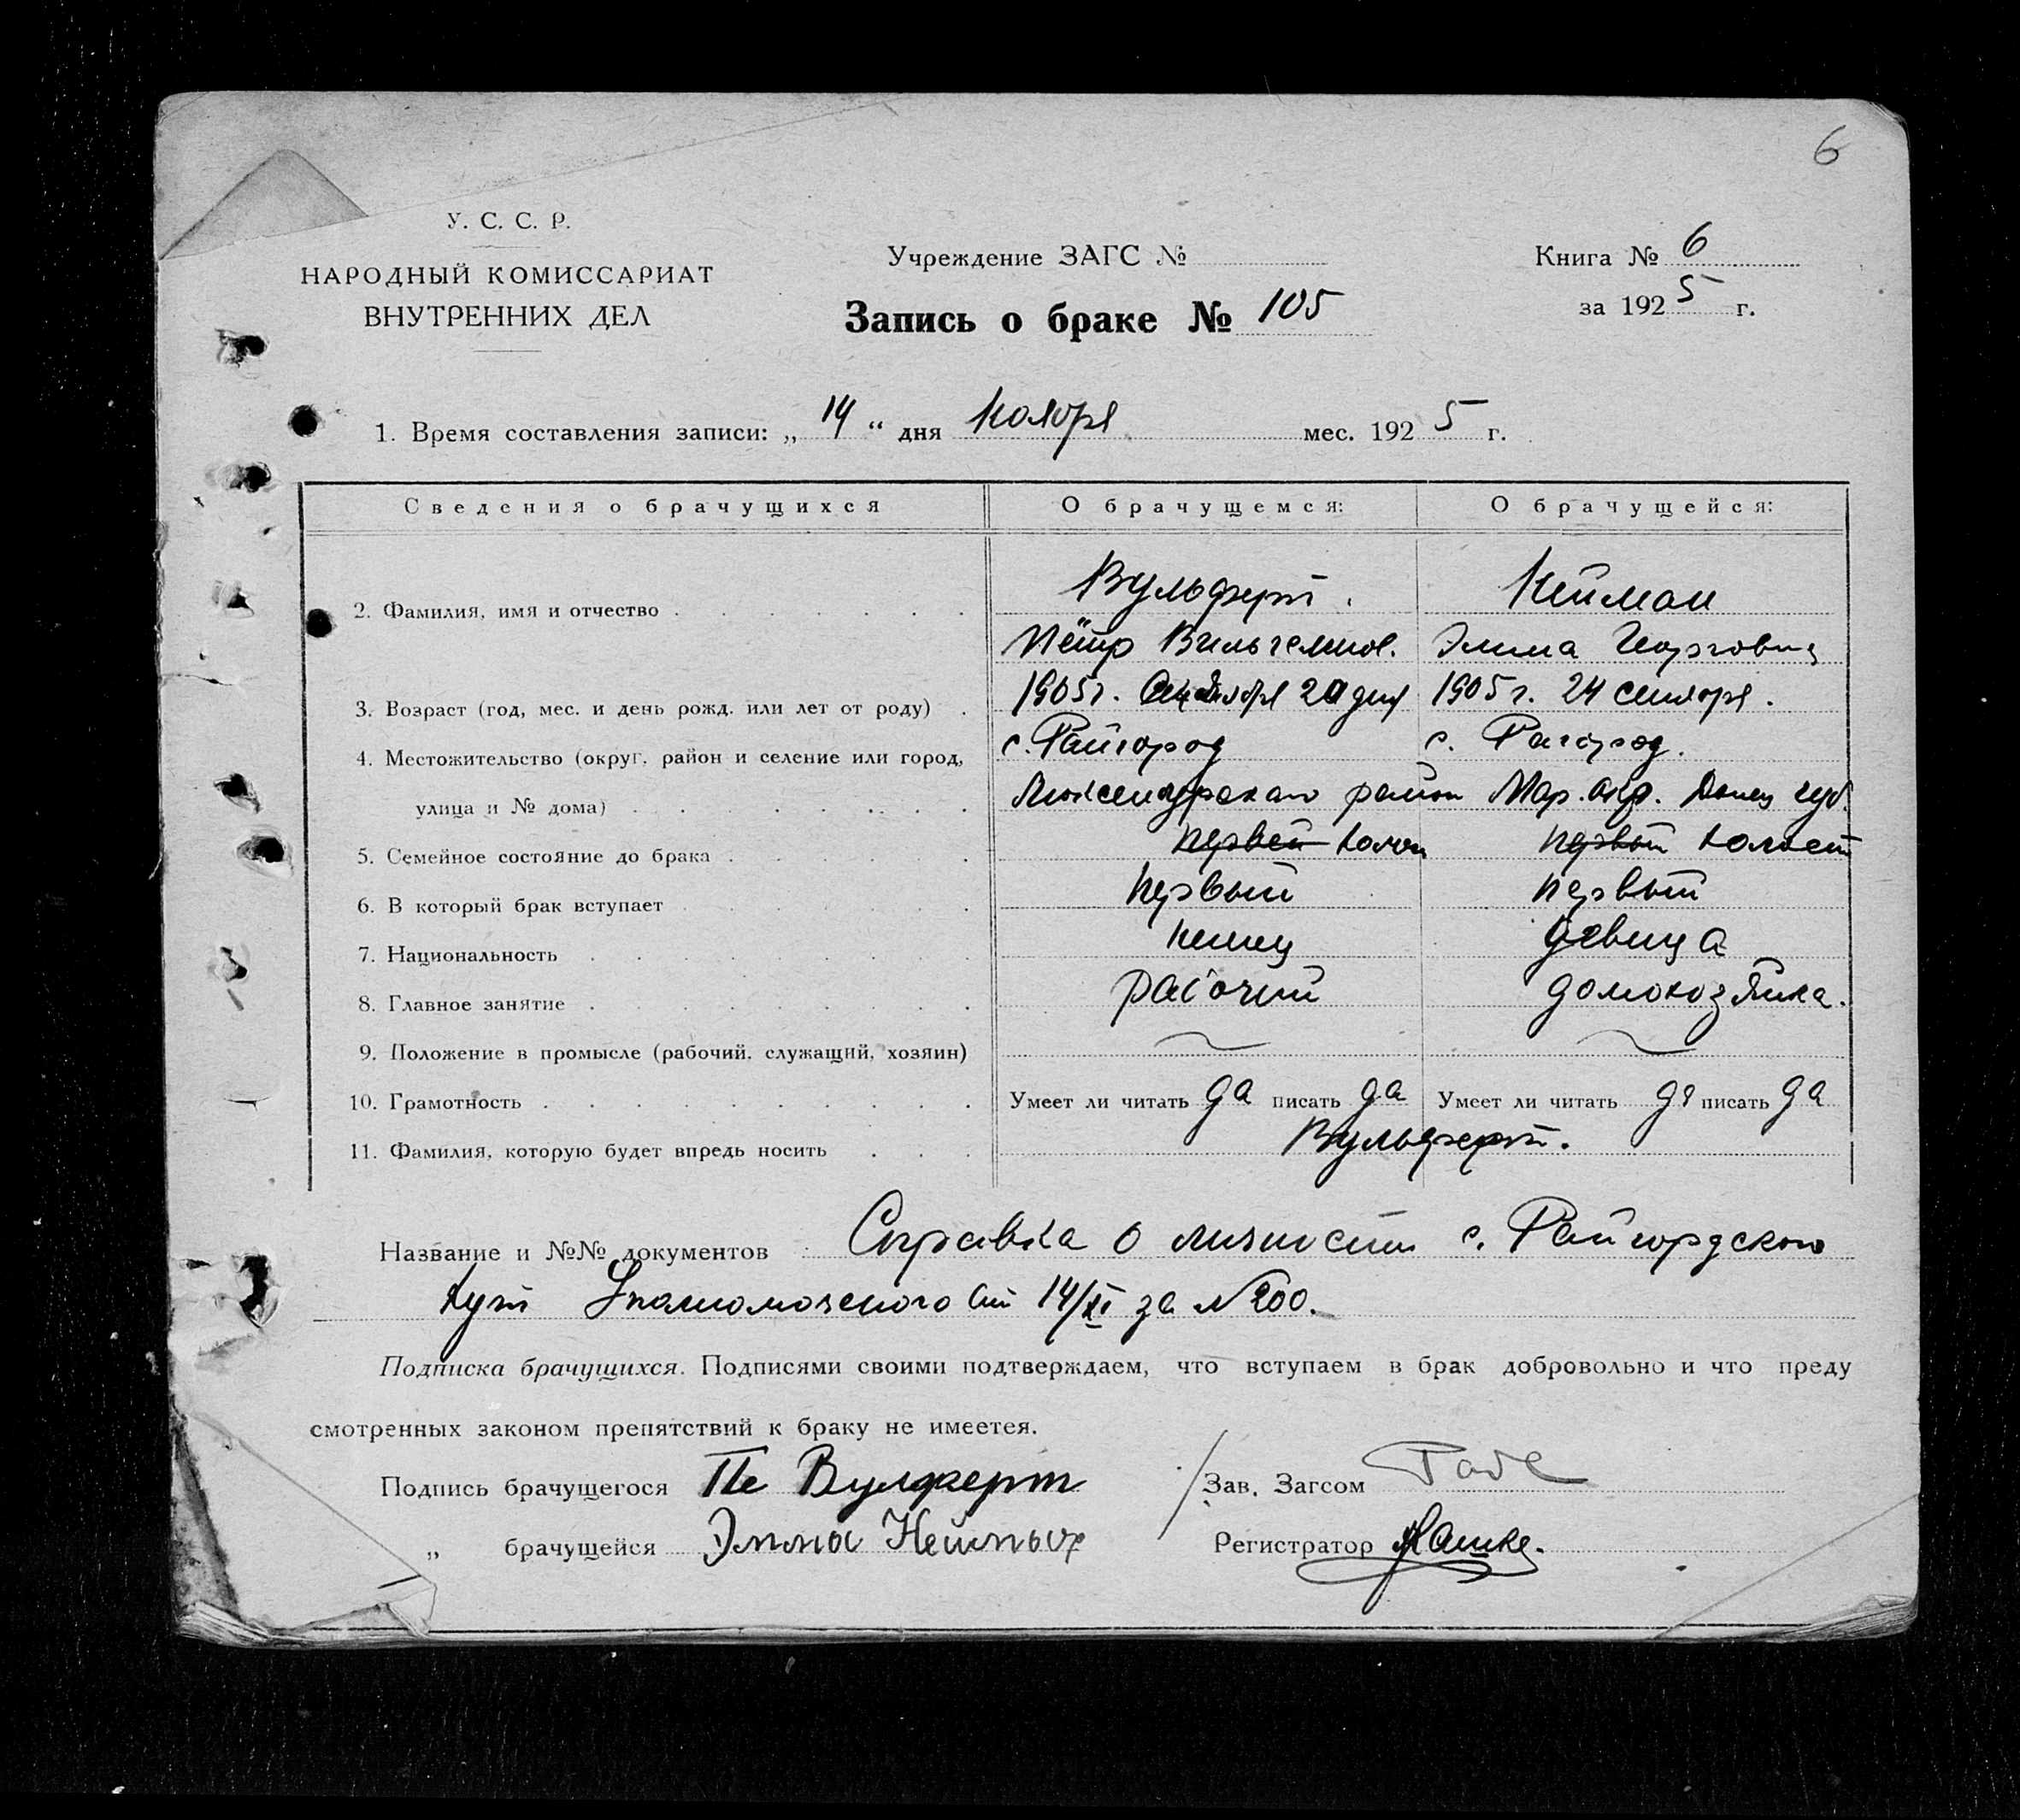 6
У. С. С. Р.
НАРОДНЫЙ КОМИССАРИАТ
ВНУТРЕННИХ ДЕЛ
Учреждение ЗАГС №
Книга № 6
за 1925 г.
Запись о браке № 105
1. Время составления записи: „ 14 “ дня Ноября мес. 1925 г.
Сведения о брачущихся О брачущемся: О брачущейся:
2. Фамилия, имя и отчество Вульферт. Нейман
Пётр Вильгельмов. Элима Георговна
3. Возраст (год, мес. и день рожд. или лет от роду) 1905 г. 20 дня 1905 г. 24 сентября.
4. Местожительство (округ, район и селение или город, с. Райгород с. Рагород.
улица и № дома) Люксембургского район Мар. окр. Донец губ.
5. Семейное состояние до брака первый холост первый холост
6. В который брак вступает первый первый
7. Национальность немец девица
8. Главное занятие рабочий домохозяйка.
9. Положение в промысле (рабочий, служащий, хозяин)
10. Грамотность Умеет ли читать да писать да Умеет ли читать да писать да
11. Фамилия, которую будет впредь носить Вульферт.
Название и №№ документов Справка о личности с. Райгородского
Уполномоченого от 14/XI за № 200.
Подписка брачущихся. Подписями своими подтверждаем, что вступаем в брак добровольно и что преду
смотренных законом препятствий к браку не имеется.
Подпись брачущегося Пе Вулферт
Зав. Загсом
„ брачущейся Эмма Нейман
Регистратор